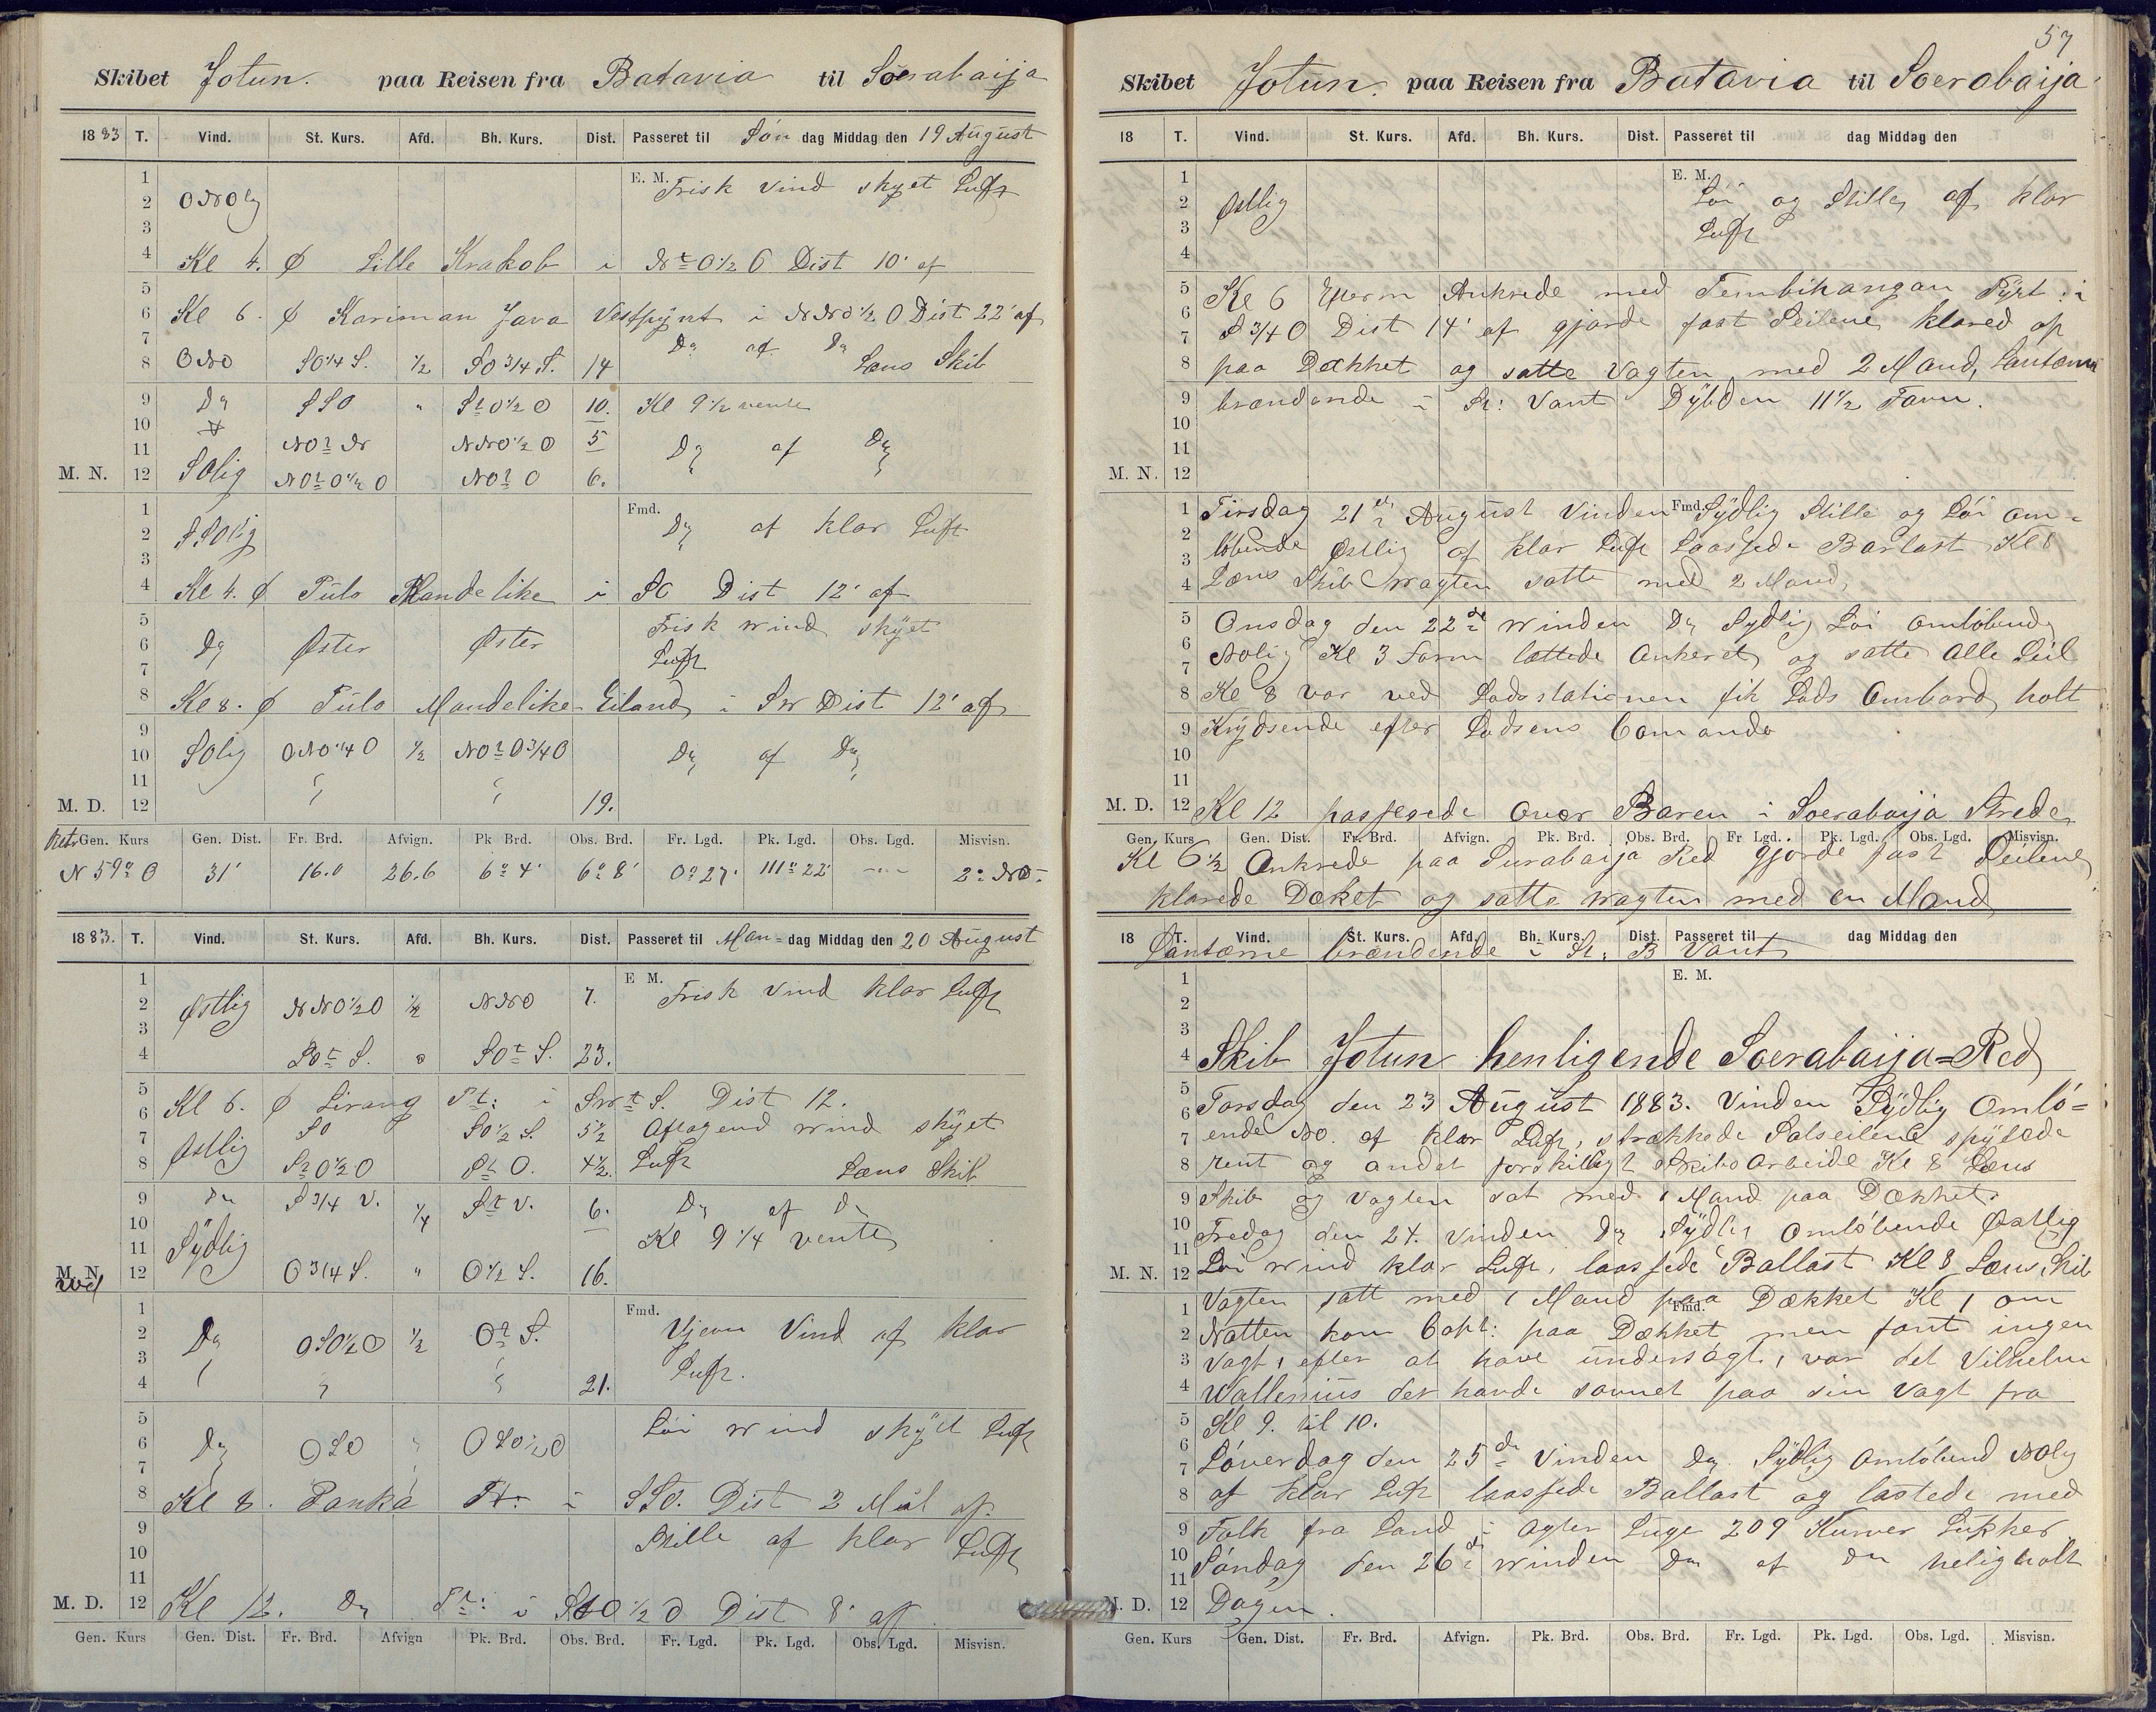 Skibet Jotun. paa Reisen fra Batavia til Soerabaija
1883 T. Vind. St. Kurs. Afd. Bh. Kurs. Dist. Passeret til Søn dag Middag den 19 August
1 E. M. Frisk Vind skyet Luft
2 ONOlig
3
4 Kl 4. Φ Lille Krakob i Nt O 1/2 O Dist 10' af
5
6 Kl 6. Φ Kariman Java Vestpynt i NNO 1/2 O Dist 22' af
7 Do af Do
8 ONO SO 1/4 S. 1/2 SO 3/4 S. 14 Læns Skib
9 Do SSO " St O 1/2 O 10. Kl 9 1/2 vente
10
11 NOt N NNO 1/2 O 5 Do af Do
M. N. 12 SOlig NOt O 1/2 O NOt O 6.
1 Fmd. Do af klar Luft
2 SSOlig
3
4 Kl 4. Φ Pulo Mandelike i SO Dist 12' af
5 Frisk wind skyet
6 Do Øster Øster Luft
7
8 Kl 8. Φ Pulo Mandelike Eiland i SW Dist 12' af
9
10 SOlig ONO 1/4 O 1/2 NOt O 3/4 O Do af Do
11
M. D. 12 19.
Ret. Gen. Kurs Gen. Dist. Fr. Brd. Afvign. Pk Brd. Obs. Brd. Fr. Lgd. Pk. Lgd. Obs. Lgd. Misvisn.
N 59° O 31' 16.0 26.6 6° 4' 6° 8' 0° 27' 111° 22' -- 2° NO.
1883. T. Vind. St. Kurs. Afd. Bh. Kurs. Dist. Passeret til Man= dag Middag den 20 August
1 E M. Frisk Vind klar Luft
2 Østlig NNO 1/2 O 1/2 NNO 7.
3
4 SOt S. " SOt S. 23.
5
6 Kl 6. Φ Lirang Pt: i SWt S. Dist 12.
7 SO SO 1/2 S. 5 1/2 Aftagend wind skyet
8 Østlig St O 1/2 O St O. 4 1/2. Luft Læns Skib
9 Do S 3/4 V. 1/4 St V. 6. Do af Do
10 Kl 9 1/4 vente
11 Sydlig
M. N. 12 O 3/4 S. " O 1/2 S. 16.
1 Fmd. Ujevn Vind af klar
2 Do OSO 1/2 O 1/2 Ot S.
3 Luft.
4 21.
5 Løi wind skyet Luft
6 Do OSO OSO 1/2 O
7
8 Kl 8. Panka Pt: i SSO. Dist 2 Mil af.
9 Stille af klar Luft
10
11
M. D. 12 Kl 12. Do Pt: i O 1/2 O Dist 8' af
Gen. Kurs Gen. Dist. Fr. Brd. Afvign Pk. Brd. Obs. Brd. Fr. Lgd. Pk. Lgd. Obs. Lgd. Misvisn.
57
Skibet Jotun. paa Reisen fra Batavia til Soerabaija
18 T. Vind. St. Kurs. Afd. Bh. Kurs. Dist. Passeret til dag Middag den
1 E. M.
2 Østlig Løi og Stille af klar
3 Luft
4
5 Kl 6 Efterm Ankrede med Tembihangan Fyrt i
6 S 3/4 O Dist 14' af gjorde fast Seilene klared op
7
8 paa Dækket og satte Vagten med 2 Mand, Lantærn
9 brændende i St: Vant Dybden 11 1/2 Favn.
10
11
M. N. 12
1 Tirsdag 21de August Vinden Fmd. Sydlig Stille og Løi om=
2 løbende Østlig af klar Luft Laassede Barlast Kl 8
3
4 Læns Skib wagten satte med 2 Mand,
5 Onsdag den 22de winden Do Sydlig Løi omløbend
6 NOlig Kl 3 Form lættede Ankeret og satte Alle Seil
7
8 Kl 8 var ved Lodsstationen fik Lods Ombord holt
9 Krydsende efter Lodsens Comando
10
11
M. D. 12 Kl 12 passerede over Baren i Soerabaija Strede
Gen. Kurs Gen. Dist. Fr. Brd. Afvign. Pk. Brd. Obs. Brd. Fr Lgd. Pk. Lgd. Obs. Lgd. Misvisn.
Kl 6 1/2 Ankrede paa Surabaija Red gjorde fast Seilene
klarede Dæket og satte wagten med en Mand
18 T. Vind. St. Kurs. Afd. Bh. Kurs. Dist. Passeret til dag Middag den
Lantærne brændende i St. B Vant
1 E. M.
2
3
4 Skib Jotun henligende Soerabaija=Red
5
6 Torsdag den 23 August 1883. Vinden Sydlig Omlö=
7 ende NO. af klar Luft, strækkede Solseilene spylede
8 rent og andet forskilligt skibsarbeide Kl 8 Læns
9 Skib og Vagten sat med 1 Mand paa Dækket.
10 Fredag den 24. vinden Do Sydlig omløbende Østlig
11
M. N. 12 Løi wind klar Luft, laassede Ballast Kl 8 Læns Skib
1 Vagten satt med 1 Mand paa Dækket Kl 1 om
Fmd.
2 Natten kom Capt: paa Dækket men fant ingen
3 Vagt, efter at have undersøgt, var det Vilhelm
4 Wallenius der havde sovnet paa sin Vagt fra
5 Kl 9. til 10.
6
7 Løverdag den 25de Vinden Do Sydlig Omløbend NOlig
8 af klar Luft laassede Ballast og lastede med
9 Folk fra Land i Agter Luge 209 Kurver Sukker
10 Søndag den 26de winden Do af Do heligholt
11
M. D. 12 Dagen.
Gen. Kurs Gen. Dist. Fr. Brd. Afvign. Pk. Brd. Obs. Brd. Fr. Lgd. Pk. Lgd. Obs. Lgd. Misvisn.